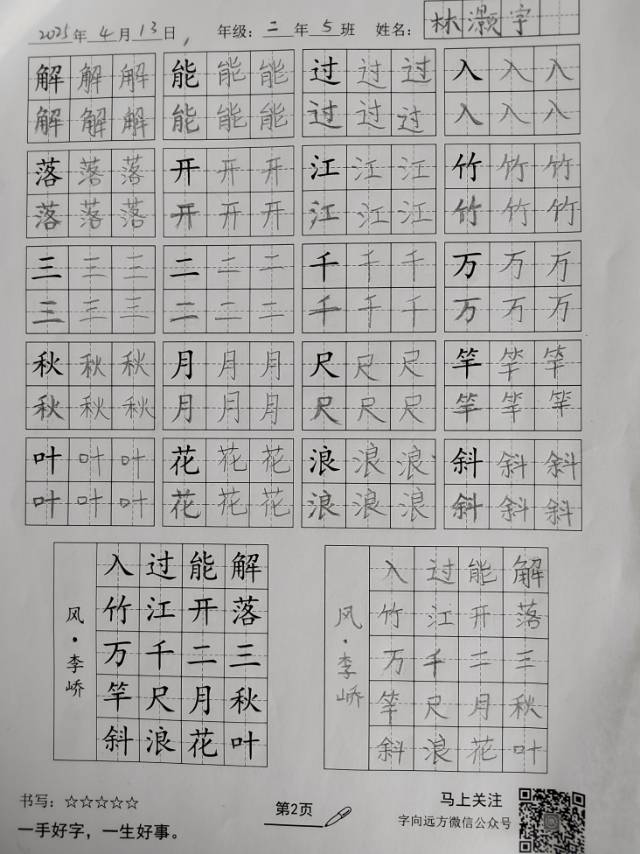 2025年4月13日, 年级:二年5班 姓名:林灏宇
解解解 能能能 过过过 入入入
解解解 能能能 过过过 入入入
落落落 开开开 江江江 竹竹竹
落落落 开开开 江江江 竹竹竹
三三三 二二二 千千千 万万万
三三三 二二二 千千千 万万万
秋秋秋 月月月 尺尺尺 竿竿竿
秋秋秋 月月月 尺尺尺 竿竿竿
叶叶叶 花花花 浪浪浪 斜斜斜
叶叶叶 花花花 浪浪浪 斜斜斜
解落三秋叶
能开二月花
过江千尺浪
入竹万竿斜
风·李峤
解落三秋叶
能开二月花
过江千尺浪
入竹万竿斜
风·李峤
书写:☆☆☆☆☆
一手好字,一生好事。
第2页
马上关注
字向远方微信公众号